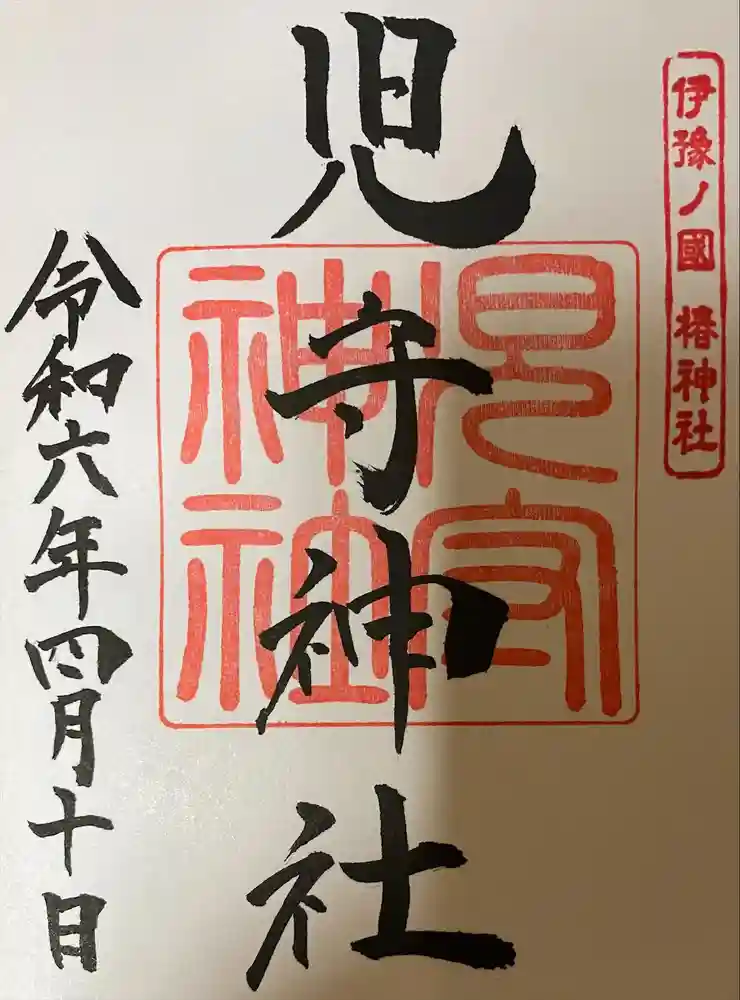 伊豫ノ國 椿神社
児守神社
児守
神社
令和六年四月十日